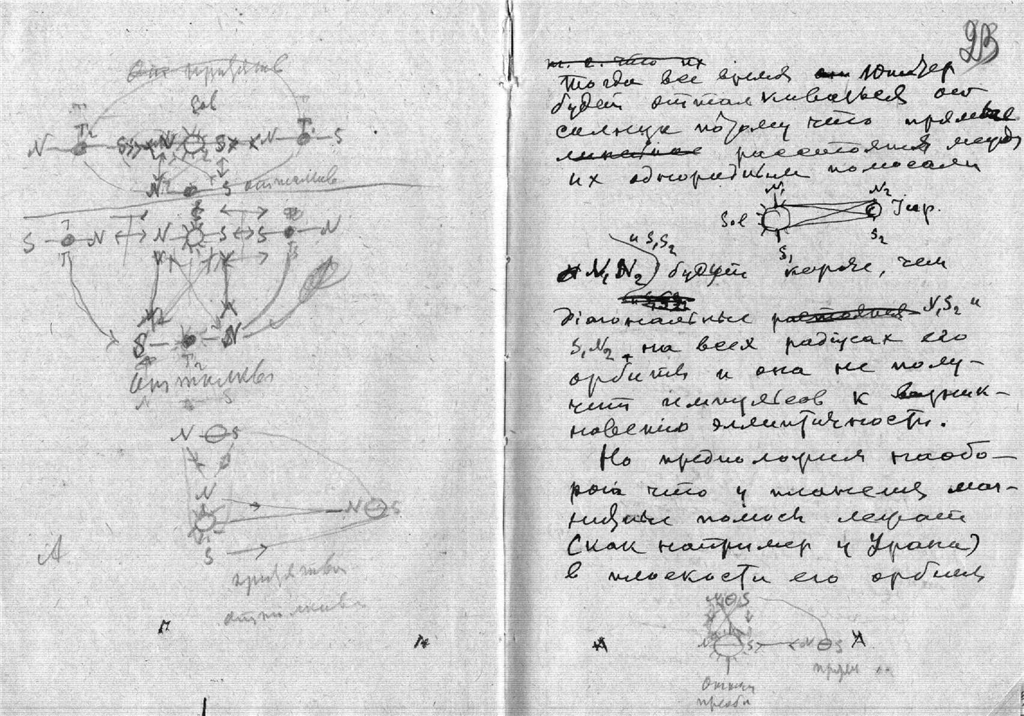 притягив
Sol
N T S N S N T S
N S отталкив
S N N S S N
T T
S N
T
Отталкив
N S
N S
N
N S
S
A
притягив
отталкив
23
т. е. что их
Тогда все время Юпитер
будет отталкиваться от
солнца потому что прямые
линейные расстояния между
их однородными полюсами
N₁ N₂
Sol Jup.
S₁ S₂
N₁N₂ и S₁S₂ будут короче, чем
діагональные расстояния N₁S₂ и
S₁N₂ на всех радіусах его
орбиты и она не полу-
чит импульсов к возник-
новению эллиптичности.
Но предположим наобо-
рот что у планеты маг-
нитные полюсы лежат
(как например у Урана)
в плоскости его орбиты
N S
N S N S
притяг
Оттал
преоб